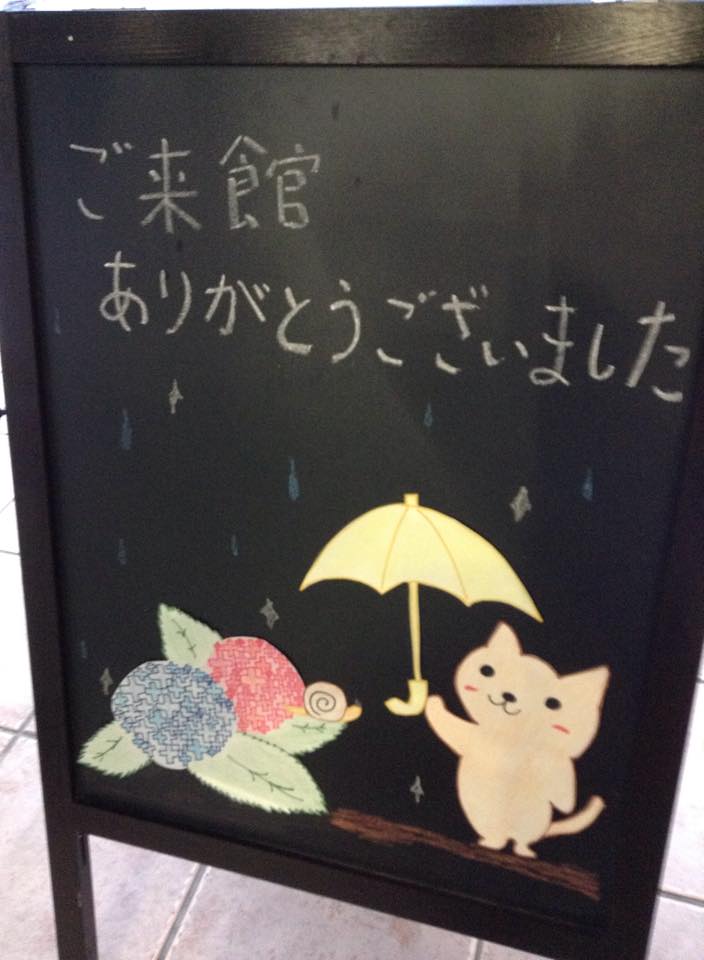 ご来館
ありがとうございました